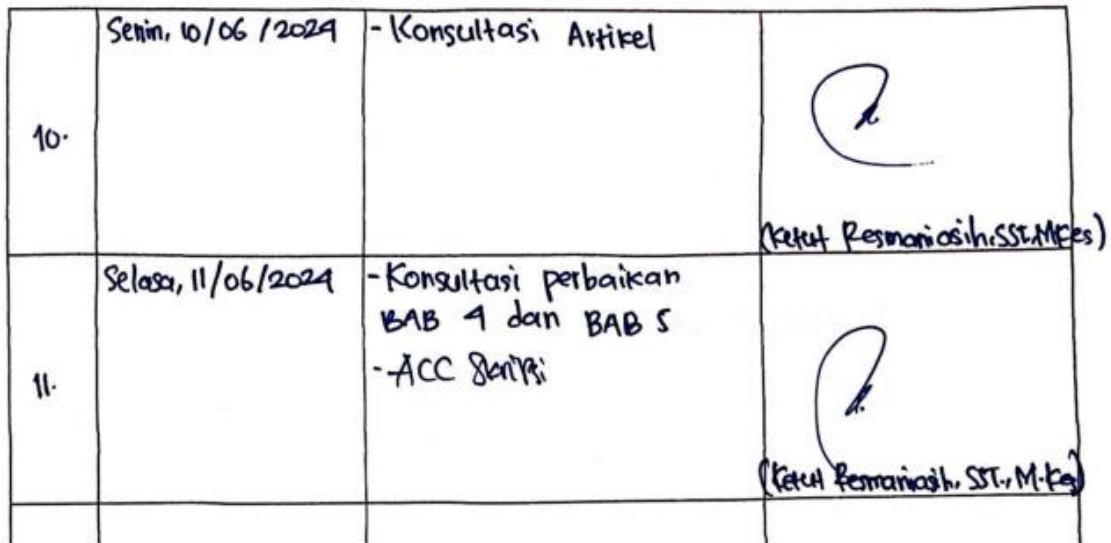 10.
Senin, 10/06/2024
- Konsultasi Artikel
(Ketut Resmaniasih, SST, M.Kes)
11.
Selasa, 11/06/2024
- Konsultasi perbaikan
BAB 4 dan BAB 5
- ACC Skripsi
(Ketut Resmaniasih, SST., M.Kes)